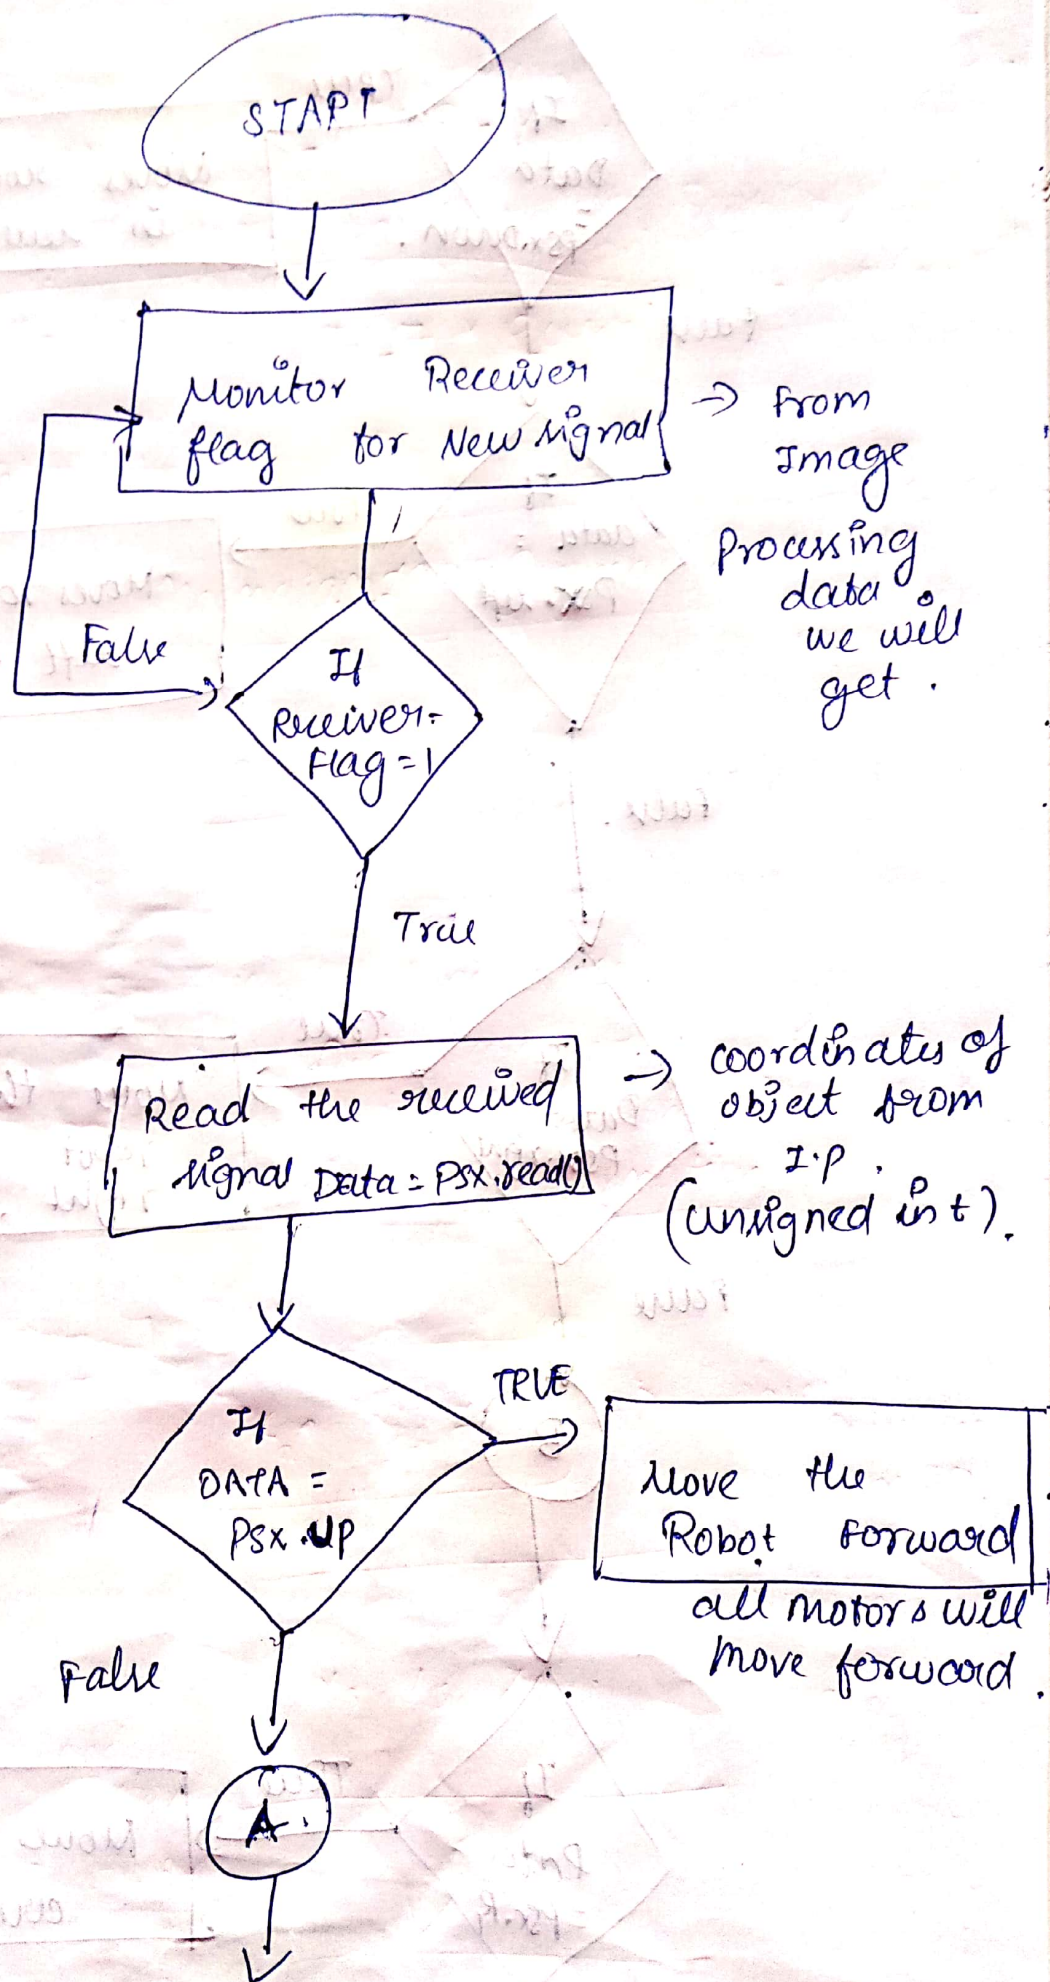 START
Monitor Receiver
flag for New signal
→ From
Image
Processing
data
we will
get.
False
If
Receiver-
Flag=1
True
Read the received
signal Data = Psx.read()
→ coordinates of
object from
I.P.
(unsigned int).
If
DATA =
Psx.UP
TRUE
Move the
Robot Forward
all motors will
move forward.
False
A.